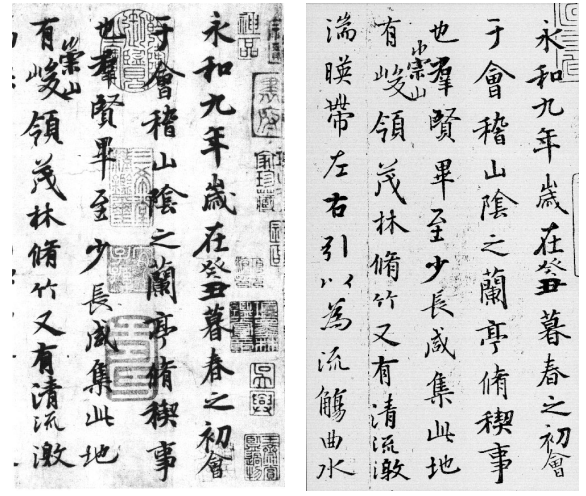 永和九年歲在癸丑暮春之初會
于會稽山陰之蘭亭脩稧事
也羣賢畢至少長咸集此地
有崇山峻領茂林脩竹又有清流激
神品
永和九年歲在癸丑暮春之初會
于會稽山陰之蘭亭脩稧事
也羣賢畢至少長咸集此地
有崇山峻領茂林脩竹又有清流激
湍暎帶左右引以為流觴曲水